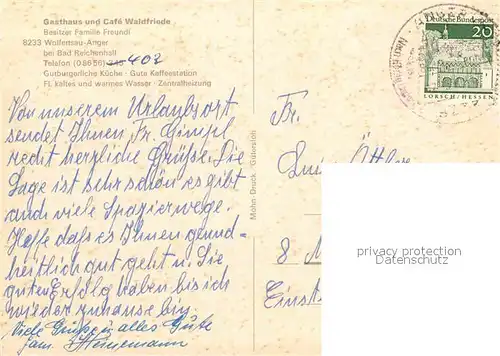 Gasthaus und Café Waldfriede
Besitzer Familie Freundl
8233 Wolfertsau-Anger
bei Bad Reichenhall
Telefon (08656) 402
Gutbürgerliche Küche · Gute Kaffeestation
Fl. kaltes und warmes Wasser · Zentralheizung
Von unserem Urlaubsort
sendet Ihnen, Fr. Gimpl
recht herzliche Grüße. Die
Lage ist sehr schön es gibt
auch viele Spazierwege.
Hoffe dass es Ihnen gesund-
heitlich gut geht u. Sie
guten Erfolg haben bis ich
wieder zuhause bin
Viele Grüße u. alles Gute
Fam. Heinemann
Mohn Druck Gütersloh
Fr.
8 M
Einst
Deutsche Bundespost
20
LORSCH/HESSEN
ANGER
privacy protection
Datenschutz